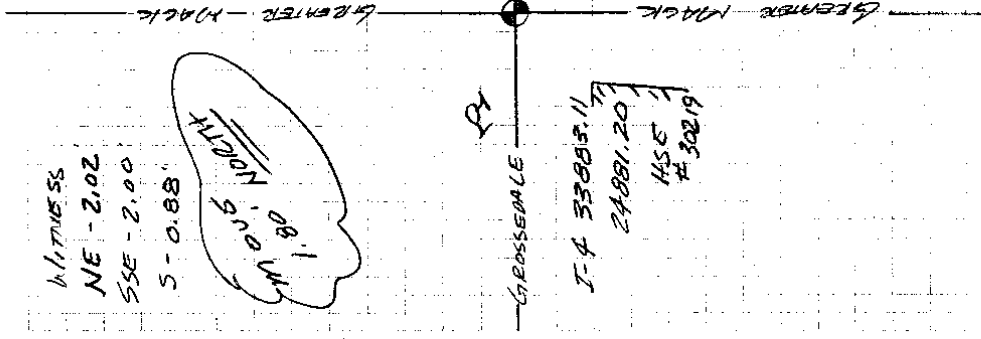 GREATER MACK
GREATER MACK
WITNESS
NE - 2.02
SSE - 2.00
S - 0.88'
MOVE
1.80'
NORTH
GROSSEDALE
I-4 33883.11
24881.20
HSE
# 30219